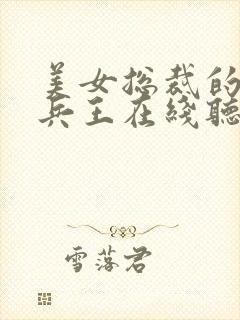 美女总裁的
兵王在线聽
雪落君